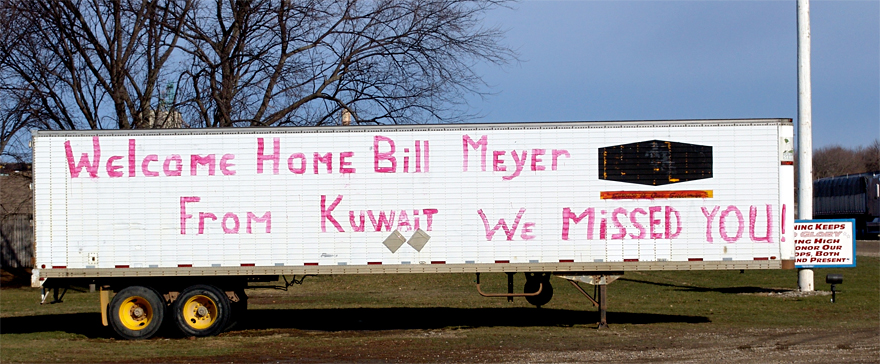 Welcome Home Bill Meyer
From Kuwait We Missed You!
NING KEEPS
GLORY
ING HIGH
ONOR OUR
OPS, BOTH
ND PRESENT"